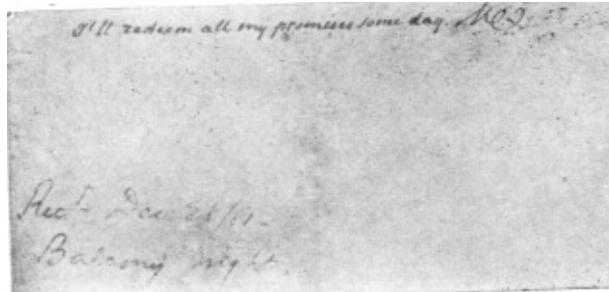 I'll redeem all my promises some day.
Rec'd Dec
Balcony night